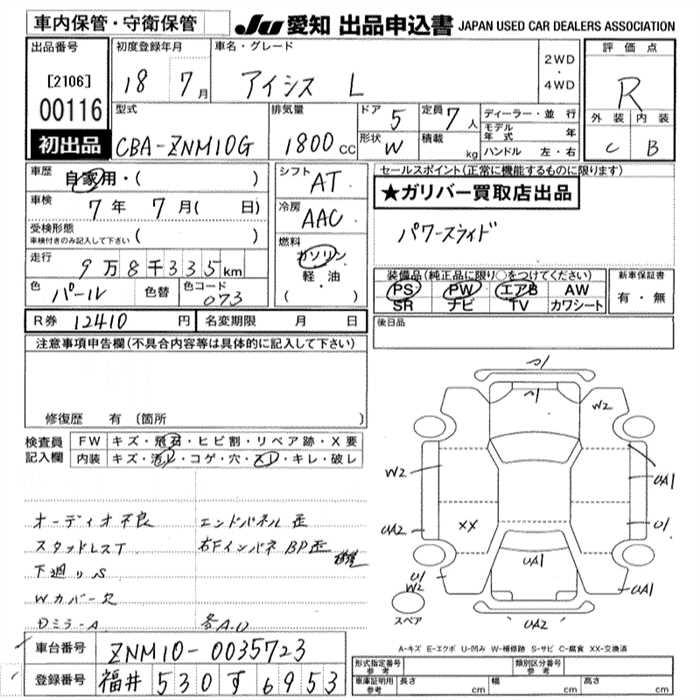 車内保管・守衛保管
JU 愛知 出品申込書 JAPAN USED CAR DEALERS ASSOCIATION
出品番号 初度登録年月 車名・グレード 2WD ・ 4WD 評価点
[2106] 18 7月 アイシス L R
00116
型式 排気量 ドア 5 定員 7人 ディーラー・並行 外装 内装
初出品 CBA-ZNM10G 1800cc 形状 W 積載 kg モデル年式 年 C B
ハンドル 左・右
車歴 自家用・( ) シフト AT セールスポイント(正常に機能するものに限ります)
★ガリバー買取店出品
車検 7年 7月( 日) 冷房 AAC
パワースライド
受検形態 ( )
車検付きのみ記入して下さい
燃料 ガソリン
走行 9万8千335km 軽・油
( )
装備品(純正品に限り○をつけてください) 新車保証書
色 パール 色替 色コード 073
PS PW エアB AW 有・無
SR ナビ TV カワシート
R券 12410円 名変期限 月 日 後日品
注意事項申告欄(不具合内容等は具体的に記入して下さい)
修復歴 有 (箇所 )
検査員記入欄 FW キズ・飛石・ヒビ割・リペア跡・X要
内装 キズ・汚レ・コゲ・穴・スレ・キレ・破レ
オーディオ不良 エンドパネル歪
スタッドレスT 右Fインパネ BP歪
下廻りS
Wカバー欠
Dミラー A
W2
W2 UA1
UA2 XX U1
UA1
U1
W2 UA1
スペア UA2
A-キズ E-エクボ U-凹み W-補修跡 S-サビ C-腐食 XX-交換済
車台番号 ZNM10-0035723
登録番号 福井 530 す 6953
形式指定番号 参考 類別区分番号 参考
車庫証明用 参考 長さ cm 幅 cm 高さ cm